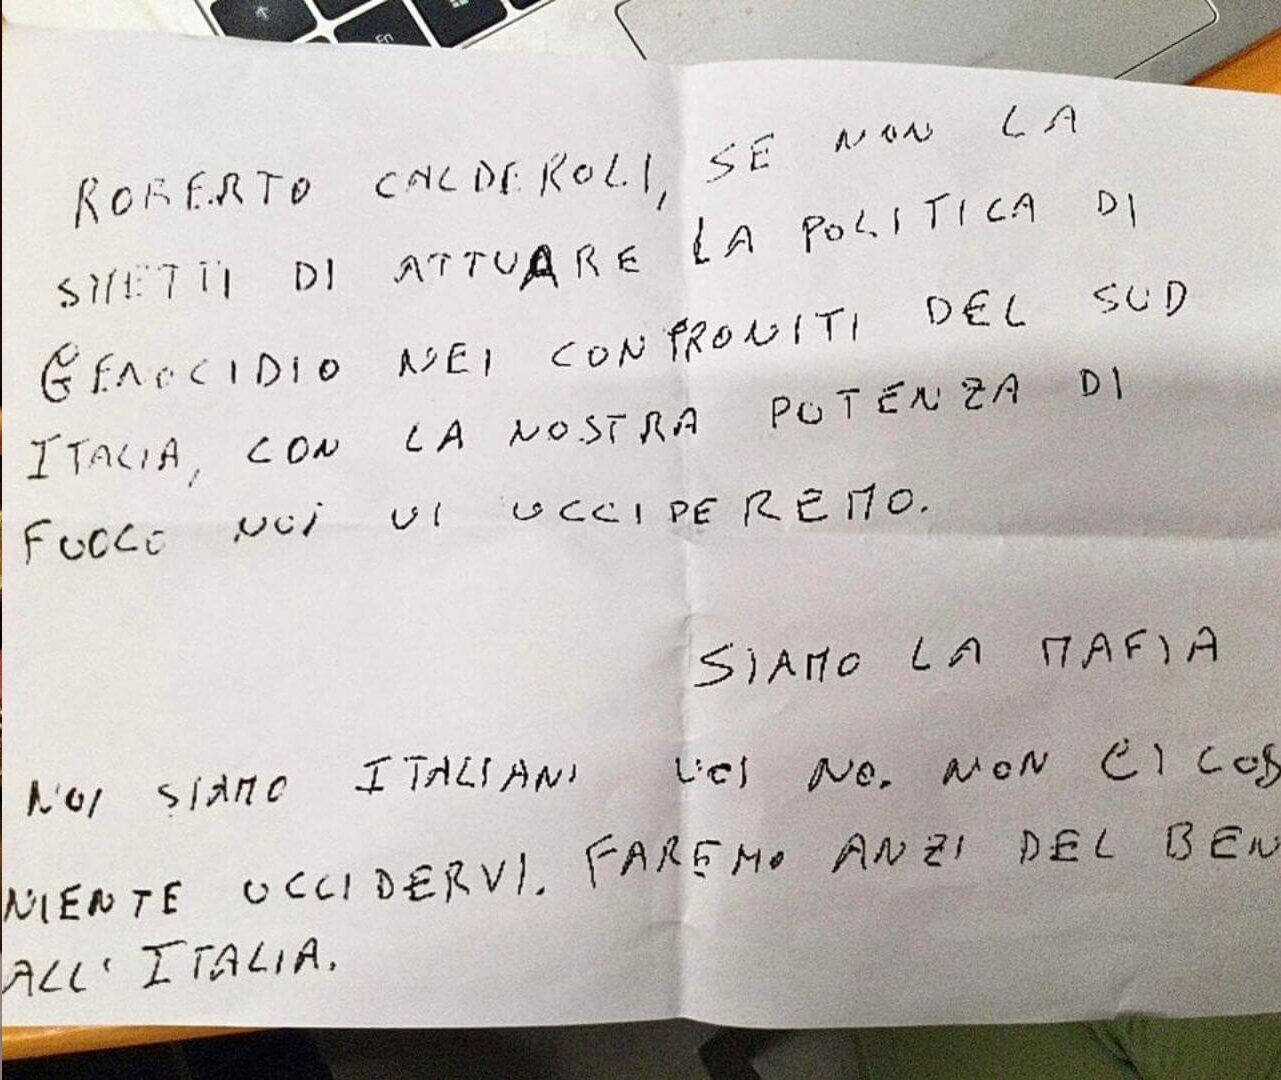 Fn
ROBERTO CALDEROLI, SE NON LA
SMETTI DI ATTUARE LA POLITICA DI
GENOCIDIO NEI CONFRONITI DEL SUD
ITALIA, CON LA NOSTRA POTENZA DI
FUOCO NOI VI UCCIDEREMO.
SIAMO LA MAFIA
NOI SIAMO ITALIANI VOI NO. NON CI COS
NIENTE UCCIDERVI. FAREMO ANZI DEL BEN
ALL'ITALIA.